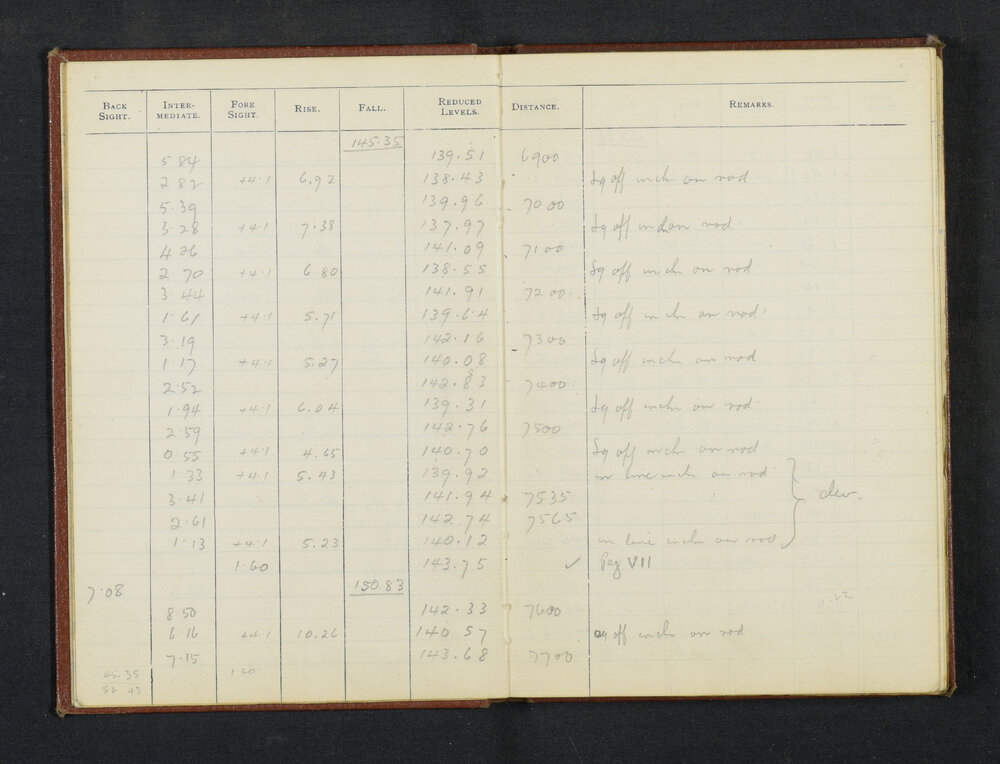 BACK SIGHT. INTER-MEDIATE. FORE SIGHT. RISE. FALL. REDUCED LEVELS. DISTANCE. REMARKS.
145.35
5.84 139.51 6900
2.82 +4.1 6.92 138.43 Sq off inch on rod
5.39 139.96 7000
3.28 +4.1 7.38 137.97 Sq off inch on rod
4.26 141.09 7100
2.70 +4.1 6.80 138.55 Sq off inch on rod
3.44 141.91 7200
1.61 +4.1 5.71 139.64 Sq off inch on rod
3.19 142.16 7300
1.17 +4.1 5.27 140.08 Sq off inch on rod
2.52 142.83 7400
1.94 +4.1 6.04 139.31 Sq off inch on rod
2.59 142.76 7500
0.55 +4.1 4.65 140.70 Sq off inch on rod
1.33 +4.1 5.43 139.92 in line inch on rod
3.41 141.94 7535
2.61 142.74 7565
1.13 +4.1 5.23 140.12 in line inch on rod
1.60 143.75 ✓ Peg VII
7.08 150.83
8.50 142.33 7600
6.16 +4.1 10.26 140.57 Sq off inch on rod
7.15 143.68 7700
1.60
45.35
52 43